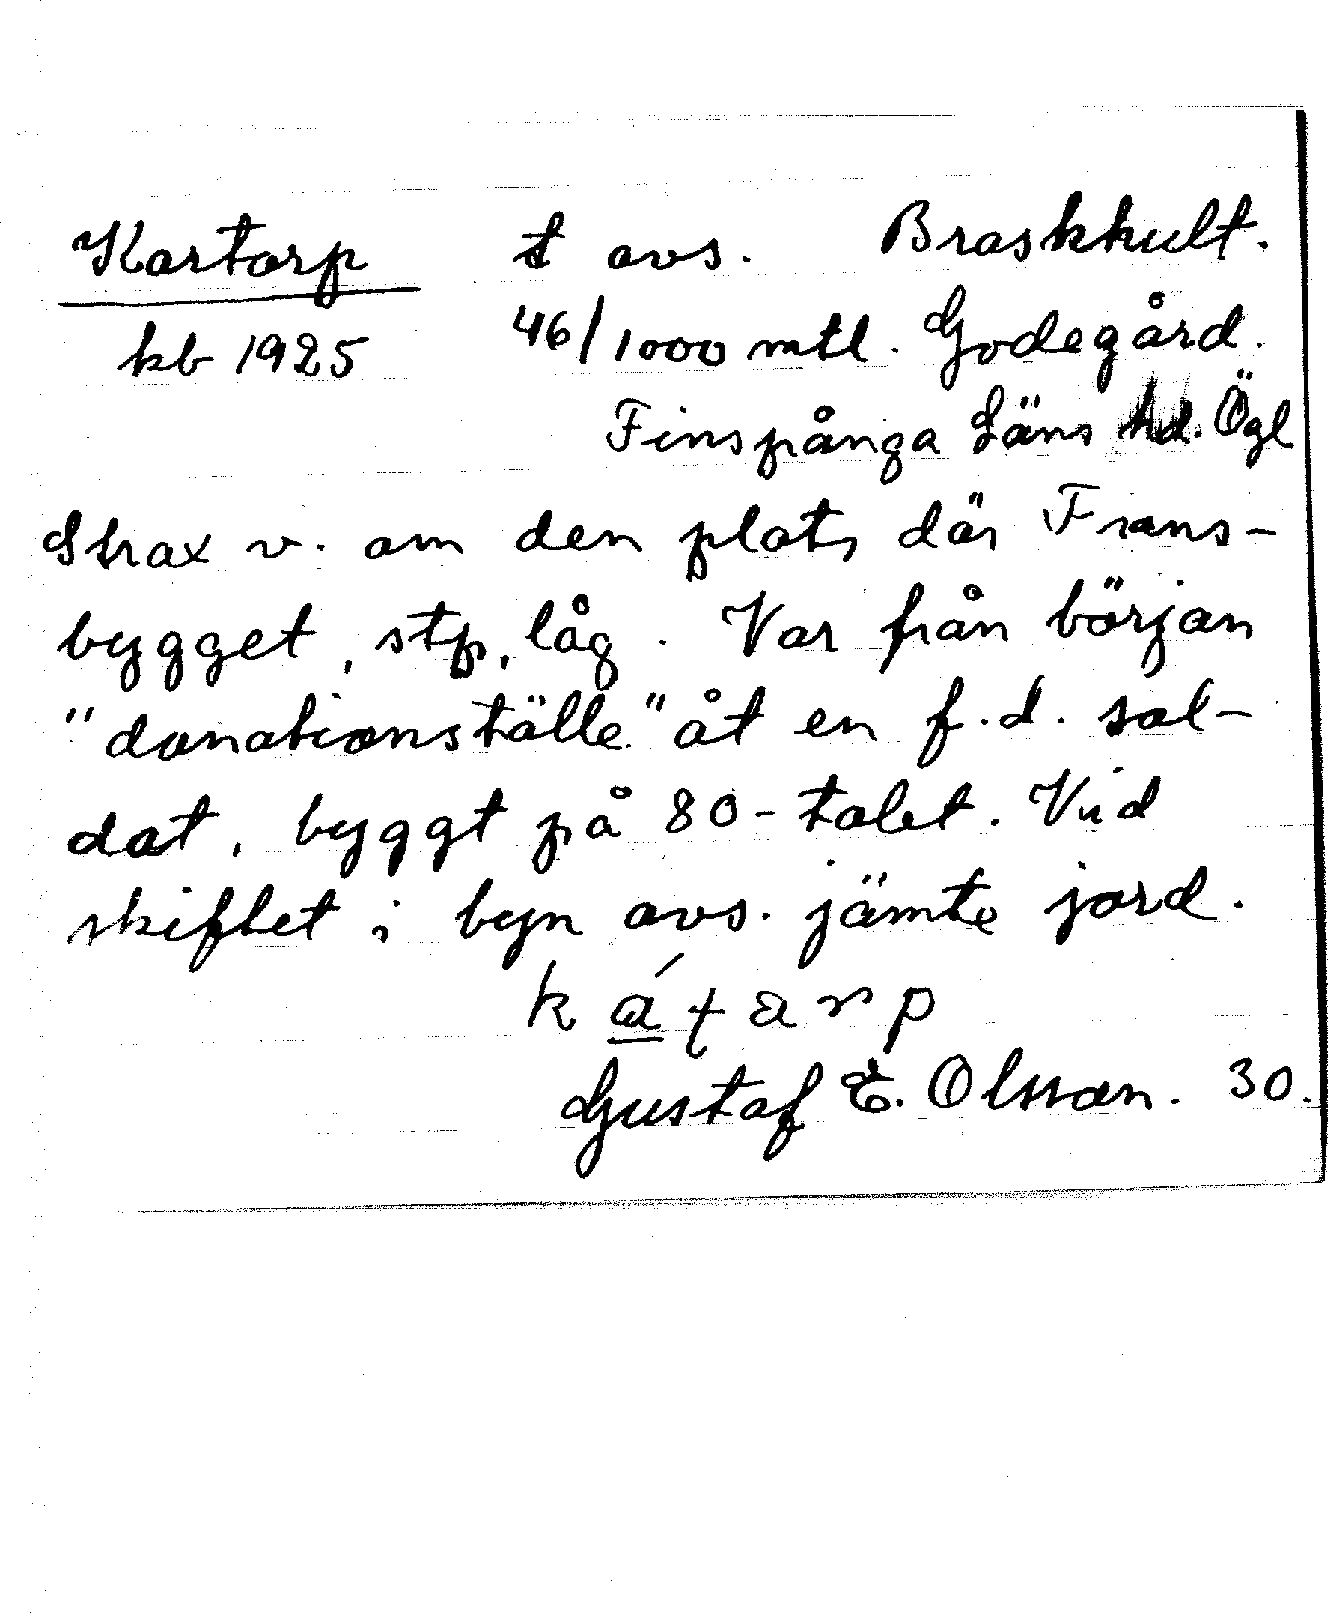 Kartorp t avs. Braskhult.
kb 1925 46/1000 mtl. Godegård.
Finspånga Läns hd. Ögl
Strax v. om den plats där Frans-
bygget, stp, låg. Var från början
"donationställe" åt en f.d. sol-
dat, byggt på 80-talet. Vid
skiftet i byn avs. jämte jord.
káṭarp
Gustaf E. Olsson. 30.